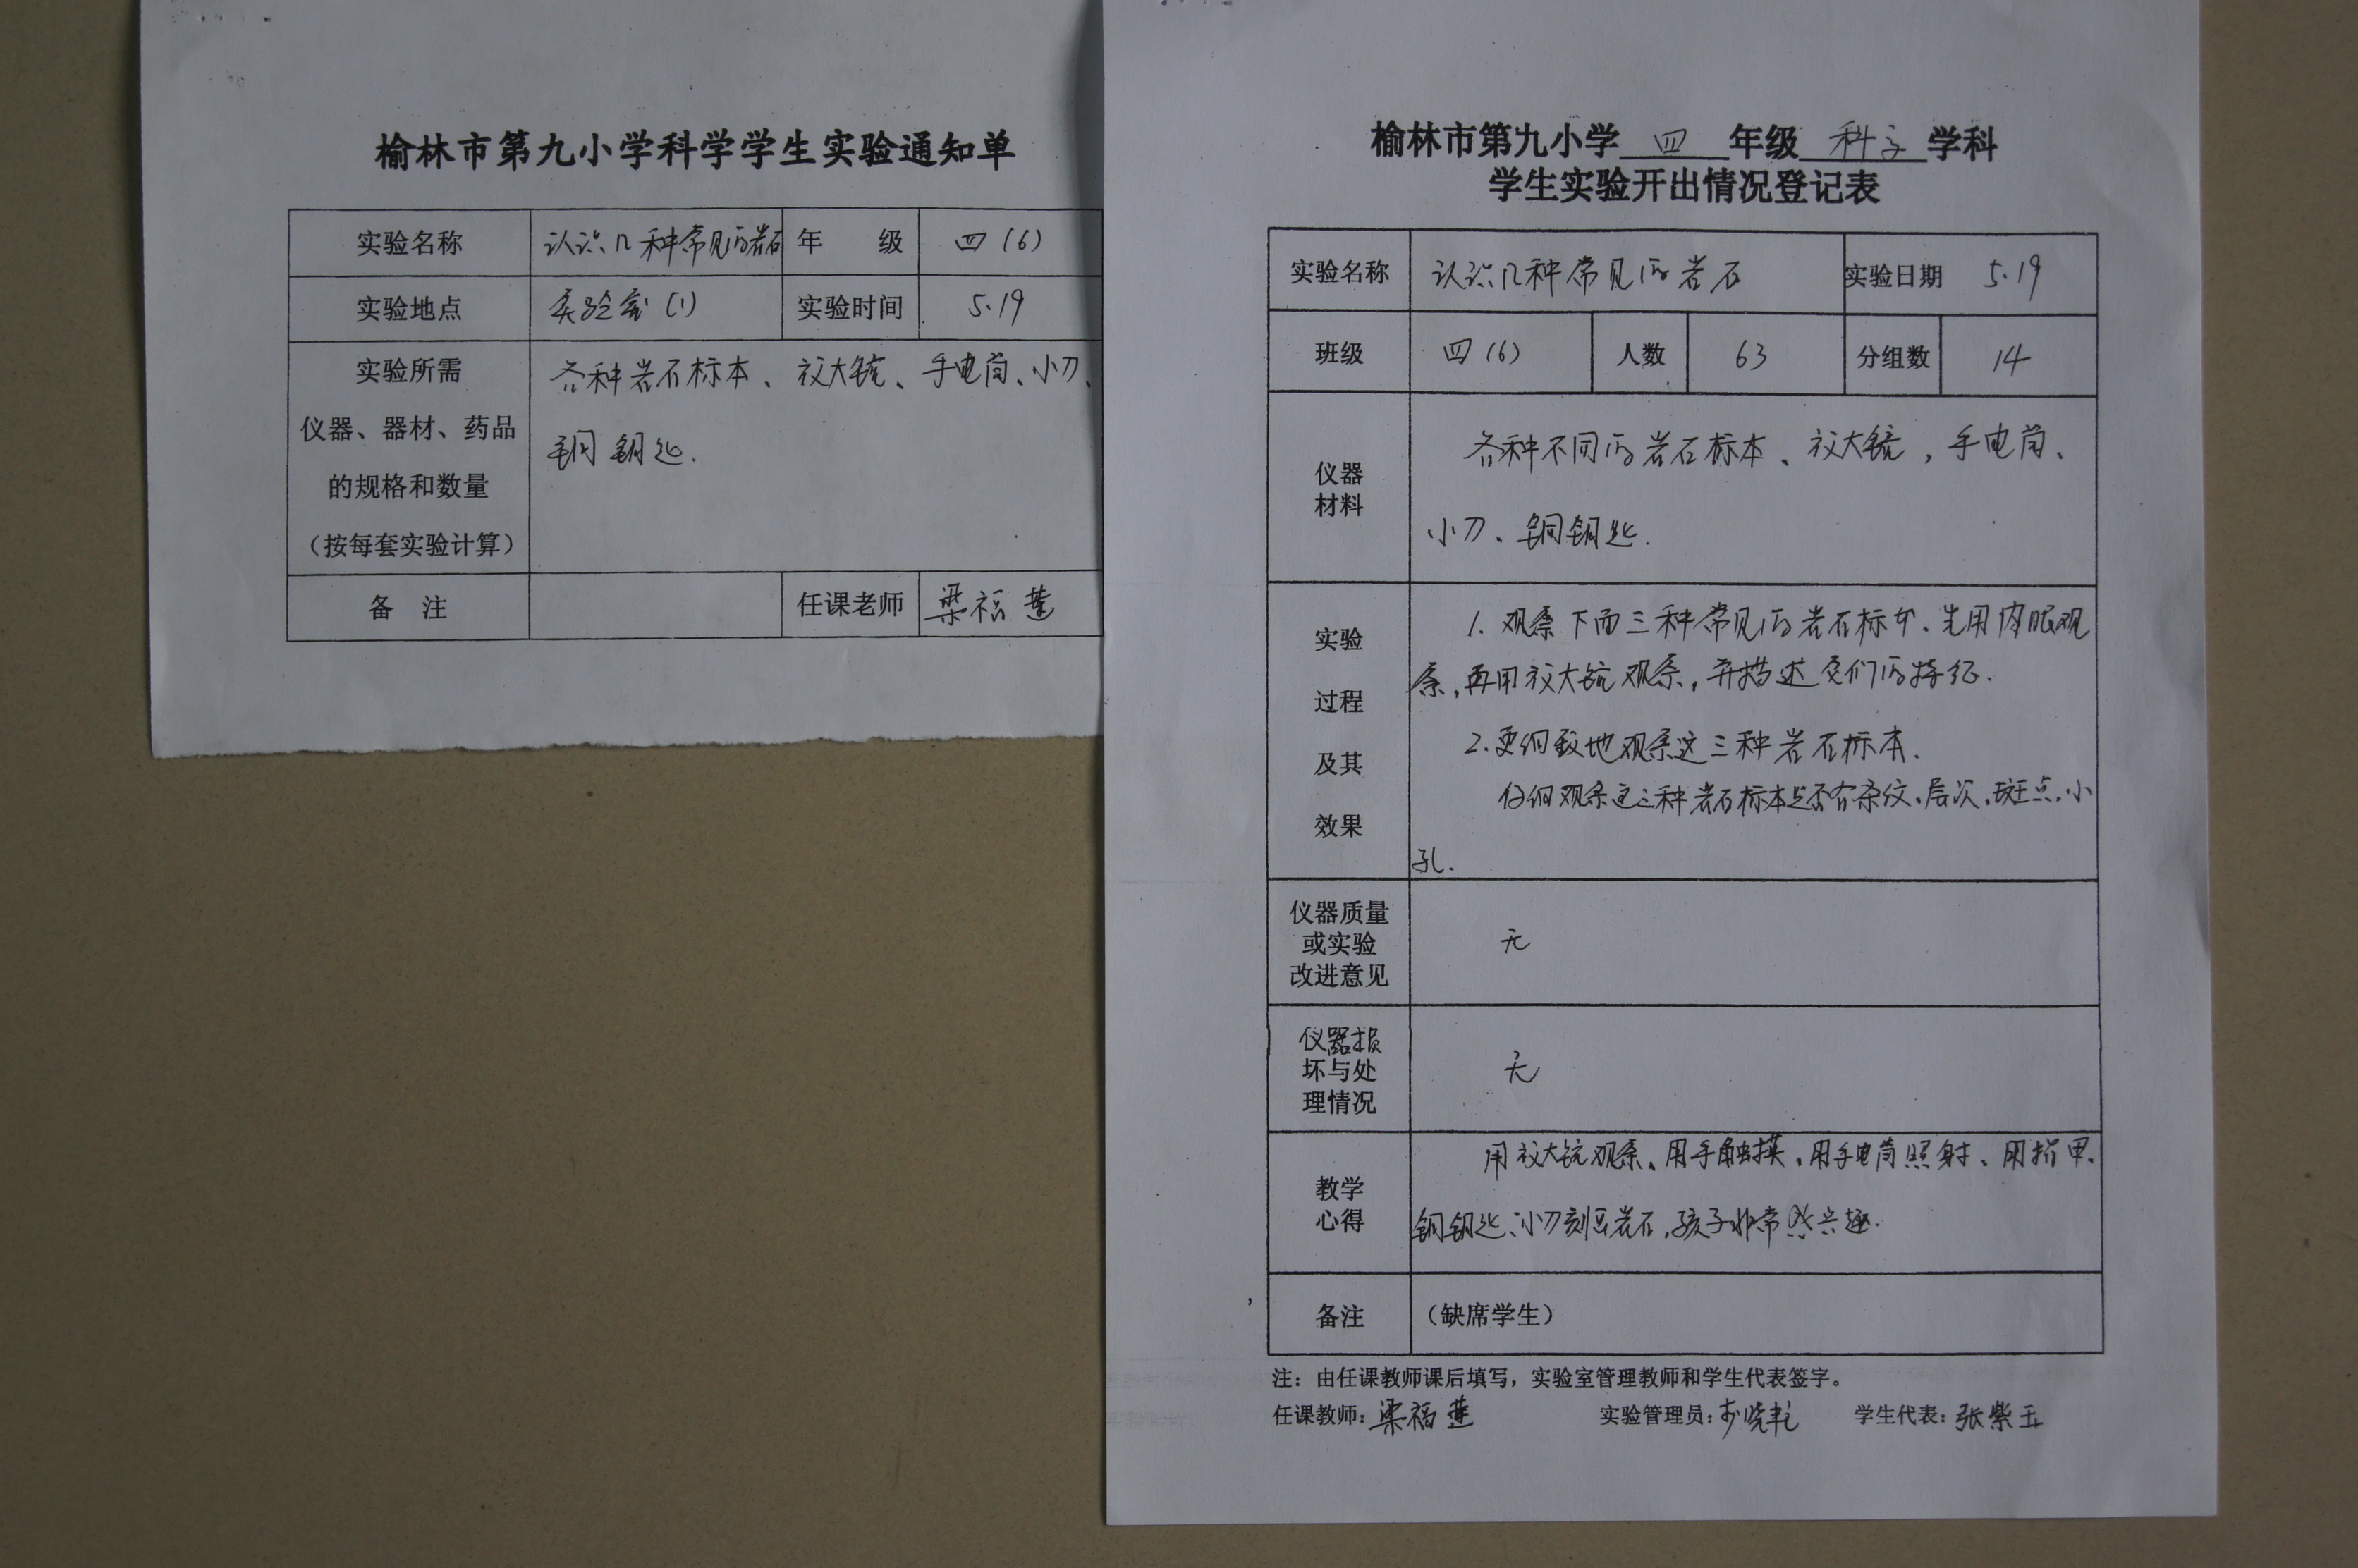 榆林市第九小学科学学生实验通知单
实验名称 认识几种常见的岩石 年 级 四(6)
实验地点 实验室(1) 实验时间 5.19
实验所需
仪器、器材、药品
的规格和数量
(按每套实验计算)
各种岩石标本、放大镜、手电筒、小刀、
铜钥匙.
备 注 任课老师 梁福莲
榆林市第九小学 四 年级 科学 学科
学生实验开出情况登记表
实验名称 认识几种常见的岩石 实验日期 5.19
班级 四(6) 人数 63 分组数 14
仪器
材料
各种不同的岩石标本、放大镜,手电筒、
小刀、铜钥匙.
实验
过程
及其
效果
1. 观察下面三种常见的岩石标本、先用肉眼观
察,再用放大镜观察,并描述它们的特征.
2.更细致地观察这三种岩石标本.
仔细观察这三种岩石标本是否有条纹、层次、斑点、小
孔.
仪器质量
或实验
改进意见
无
仪器损
坏与处
理情况
无
教学
心得
用放大镜观察、用手触摸、用手电筒照射、用指甲、
铜钥匙、小刀刻画岩石,孩子非常感兴趣.
备注 (缺席学生)
注:由任课教师课后填写,实验室管理教师和学生代表签字。
任课教师:梁福莲 实验管理员: 学生代表:张紫玉